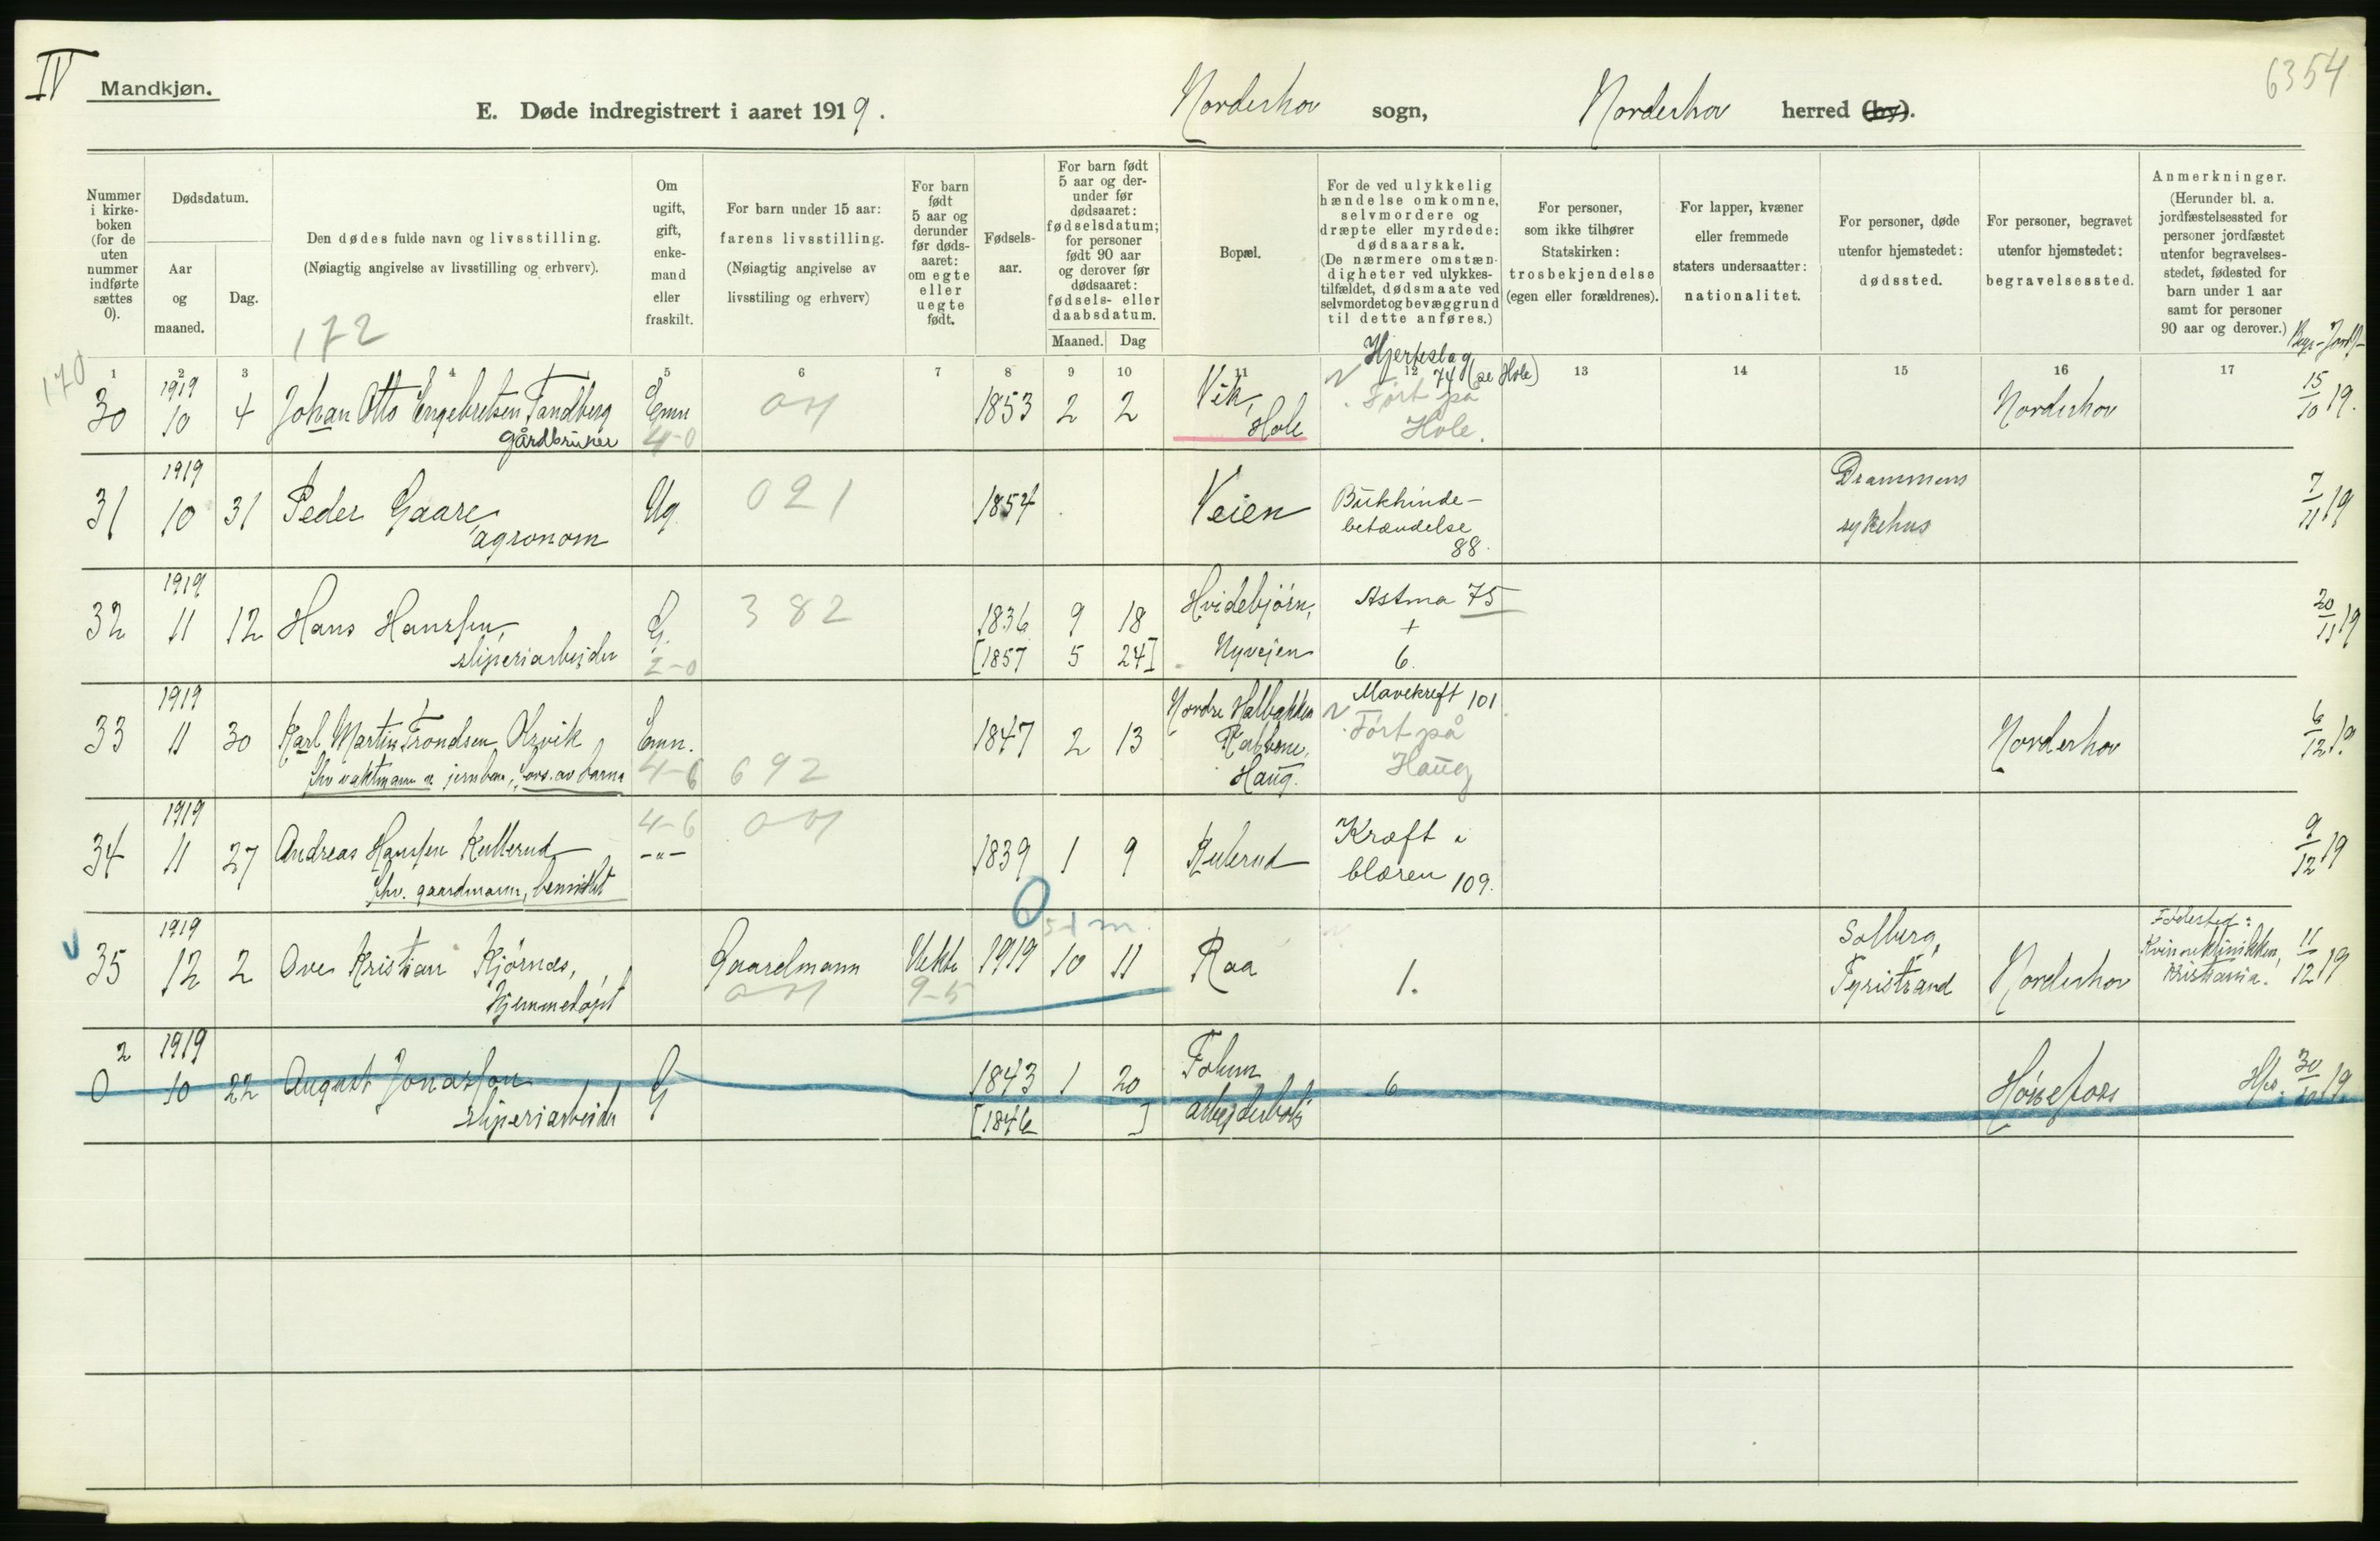 IV
Mandkjøn.
6354
E. Døde indregistrert i aaret 1919. Norderhov sogn, Norderhov herred (by).
Nummer i kirke-boken (for de uten nummer indførte sættes 0).
Dødsdatum.
Aar og maaned.
Dag.
Den dødes fulde navn og livsstilling.
(Nøiagtig angivelse av livsstilling og erhverv).
172
Om ugift, gift, enke-mand eller fraskilt.
For barn under 15 aar:
farens livsstilling.
(Nøiagtig angivelse av livsstiling og erhverv)
For barn født 5 aar og derunder før døds-aaret: om egte eller uegte født.
Fødsels-aar.
For barn født 5 aar og der-under før dødsaaret: fødselsdatum; for personer født 90 aar og derover før dødsaaret: fødsels- eller daabsdatum.
Maaned. Dag
Bopæl.
For de ved ulykkelig hændelse omkomne, selvmordere og dræpte eller myrdede: dødsaarsak.
(De nærmere omstæn-digheter ved ulykkes-tilfældet, dødsmaate ved selvmordet og bevæggrund til dette anføres.)
For personer, som ikke tilhører Statskirken: trosbekjendelse (egen eller forældrenes).
For lapper, kvæner eller fremmede staters undersaatter: nationalitet.
For personer, døde utenfor hjemstedet: dødssted.
For personer, begravet utenfor hjemstedet: begravelsessted.
Anmerkninger.
(Herunder bl. a. jordfæstelsessted for personer jordfæstet utenfor begravelses-stedet, fødested for barn under 1 aar samt for personer 90 aar og derover.)
1 2 3 4 5 6 7 8 9 10 11 12 13 14 15 16 17
170
30 1919 10 4 Johan Otto Engebretsen Tandberg
gårdbruker
Emn
4-0
1853 2 2 Vik, Hole
Hjerteslag 74 (se Hole)
Ført på Hole.
Norderhov
15/10 19.
31 1919 10 31 Peder Gaare,
agronom
Ug.
021
1854
Veien
Bukhinde-betændelse 88.
Drammens sykehus
7/11 19
32 1919 11 12 Hans Hanssen,
sliperiarbeider
G.
2-0
382
1836 9 18
[1857 5 24]
Hvidebjørn, Nyveien
Astma 75
+
6.
20/11 19
33 1919 11 30 Karl Martin Trondsen
fhv vaktmann v jernban, fors. av barna
Emn.
4-6
692
1847 2 13
Nordre
Haug.
Mavekreft 101
Ført på Haug
Norderhov
6/12 19
34 1919 11 27 Andreas Hanssen Kullerud
fhv. gaardmann, bemidlet
4-6
-"-
1839 1 9 Kulerud
Kræft i blæren 109.
9/12 19
35 1919 12 2 Ove Kristian Kjørnæs,
Hjemmedøpt
Gaardmann
Uekte
9-5
1919 10 11 Raa
1.
Solberg, Tyristrand
Norderhov
Fødested: Kvindeklinikken, Kristiania.
11/12 19
2
0 1919 10 22 August Jonassen
sliperiarbeider
G
1843 1 20
[1846 ]
Follum arbejderbolig
6
Hønefoss
30/10 19.